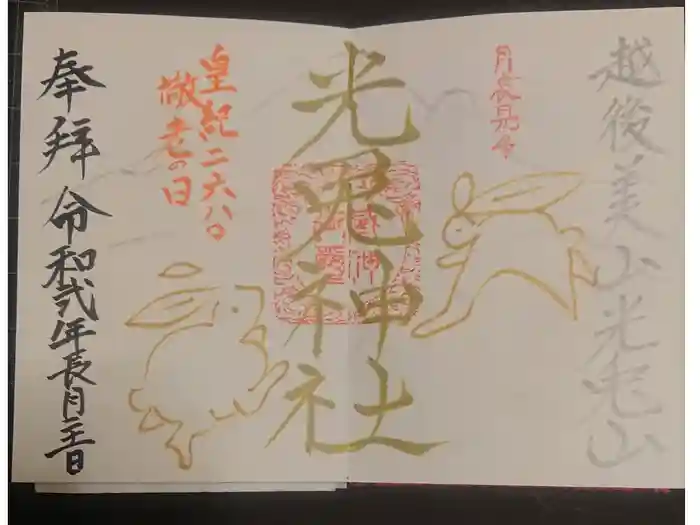 越後美山光兎山
光兎神社
皇紀二六八〇
敬老の日
奉拝 令和弐年長月二十一日